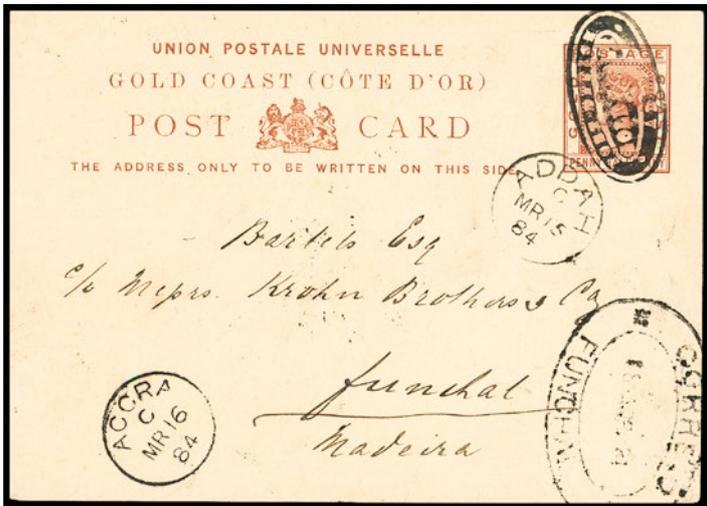 UNION POSTALE UNIVERSELLE
GOLD COAST (CÔTE D'OR)
POST CARD
THE ADDRESS ONLY TO BE WRITTEN ON THIS SIDE
POSTAGE
PENNY
ADDAH
C
MR 15
84
Bartels Esq
c/o Messrs. Krohn Brothers & Co
funchal
Madeira
ACCRA
C
MR 16
84
CORREIO
FUNCHAL